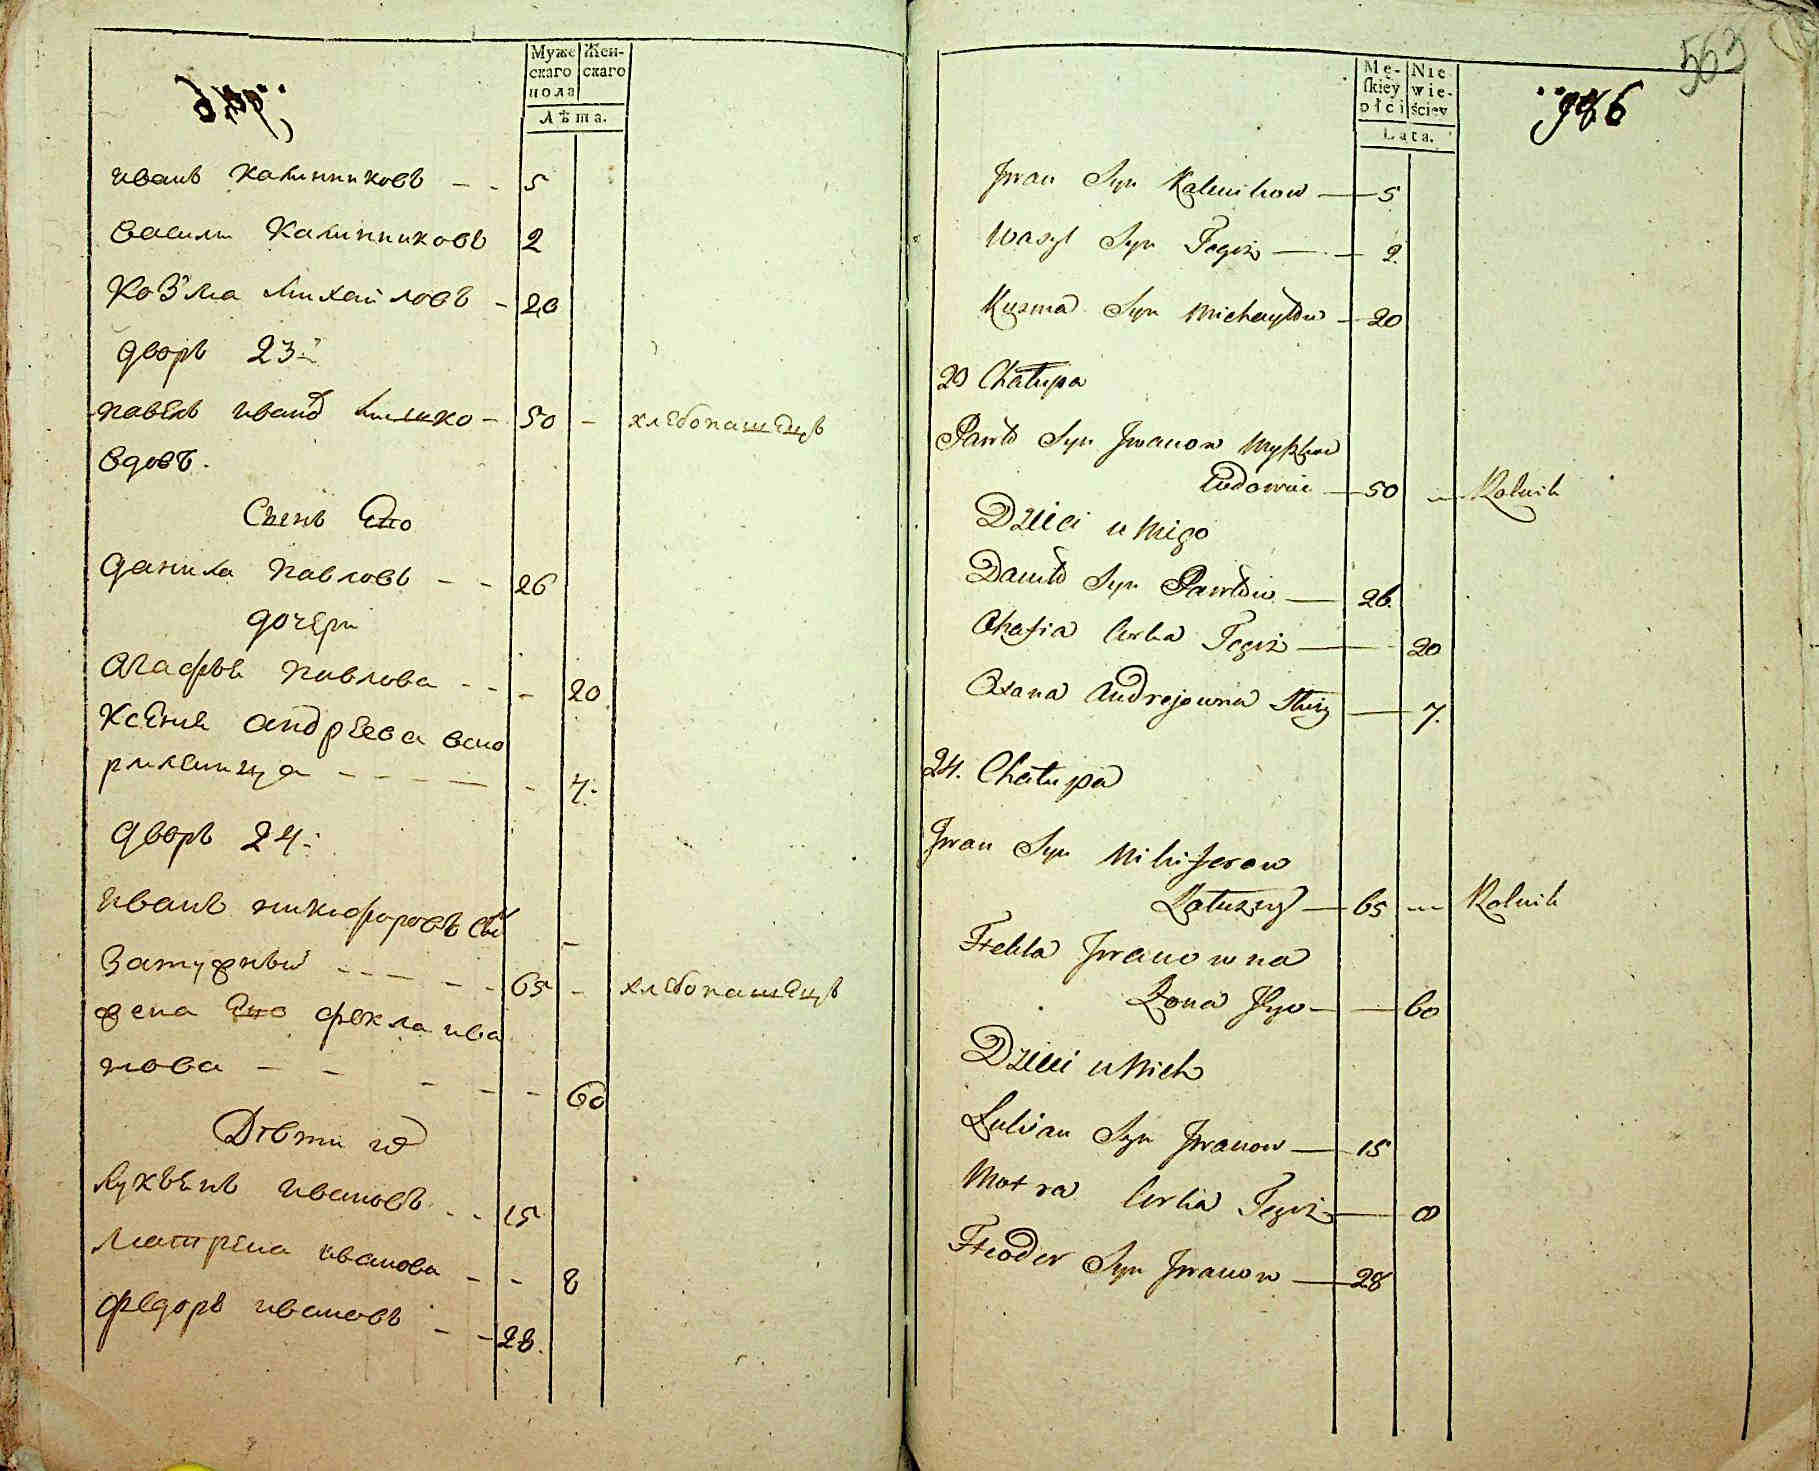 Муже
скаго
пола
Жен-
скаго
Лѣта.
иванъ Калинниковъ - - 5
васили Калинниковъ 2
Козма Михайловъ - 20
дворъ 23:
павелъ иванд - 50 - хлебопашецъ
вдовъ.
Сынъ Его
данила павловъ - - 26
дочери
агафья павлова - - - 20
Ксения андреева
4:
дворъ 24:
иванъ никифоровъ
- - - 65 - хлебопашецъ
жена Его фекла ива
нова - - - - - 60
Дѣти их
лукьенъ ивановъ - - 15
матрена иванова - - 8
федоръ ивановъ - - 28.
563
Mę-
skiey
płci
Nie
wie-
ściey
Lata.
986
Jwan Syn Kalenikow — 5
Wasyl Syn Tegoż — 2
Kuzma Syn Michayłow — 20
23 Chałupa
Pawło Syn Jwanow
Wdowiec — 50 — Rolnik
Dzieci u Niego
Daniło Syn Pawłow — 26.
Ohafia Corka Tegoż — 20
Oxana Andrejowna Służ — 7.
24. Chałupa
Jwan Syn Nikiferow
65 — Rolnik
Ftekla Jwanowna
Żona Jego — 60
Dzieci u Nich
Lukian Syn Jwanow — 15
Motra Corka Tegoż — 8
Fteoder Syn Jwanow — 28